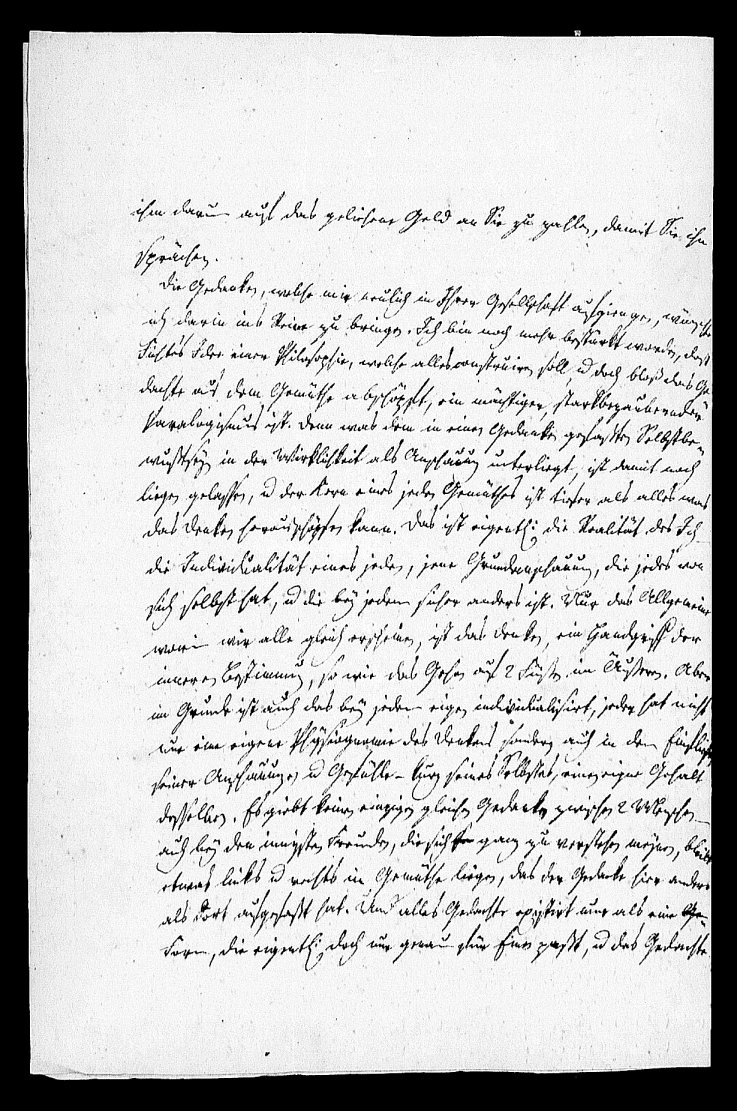 ihm darum auch das geliehene Geld an Sie zu zahlen, damit Sie ihn
sprächen.
Die Gedanken, welche mir neulich in Ihrer Gesellschaft aufgiengen, wünschte
ich darin ins Reine zu bringen. Ich bin noch mehr bestärkt worden, daß
Fichte's Idee einer Philosophie, welche alles construiren soll, u doch bloß das Ge
dachte aus dem Gemüthe abschöpft, ein mächtiger starkbezaubernder
Paralogismus ist. Denn was dem in einen Gedanken gefaßten Selbstbe„
wußtseyn in der Wirklichkeit als Anschauung unterliegt, ist damit noch
liegen gelassen, u der Kern eines jeden Gemüthes ist tiefer als alles was
das Denken herausschöpfen kann. Das ist eigentl: die Realität des Ich
die Individualität eines jeden, jene Grundanschauung, die jedes von
sich selbst hat, u die bey jedem sicher anders ist. Nur das Allgemeine
worin wir alle gleich erscheinen, ist das Denken, ein Handgriff der
inneren Bestimmung, so wie das Gehen auf 2 Füßen im Äußern. Aber
im Grunde ist auch das bey jedem eigen individualisirt, jeder hat nicht
nur eine eigene Physiognomie des Denkens sondern auch in dem Einfluße
seiner Anschauungen u Gefühle – kurz seines Selbstes, einen eigne Gehalt
desselben. Es giebt keinen einzigen gleichen Gedanken zwischen 2 Menschen –
auch bey den innigsten Freunden, die sich ganz zu verstehen meynen, bleibt
etwas links u rechts im Gemüthe liegen, das der Gedanke hier anders
als dort aufgefaßt hat. Und alles Gedachte existirt nur als eine
Form, die eigentl: doch nur genau für Einen paßt, u das Gedachte